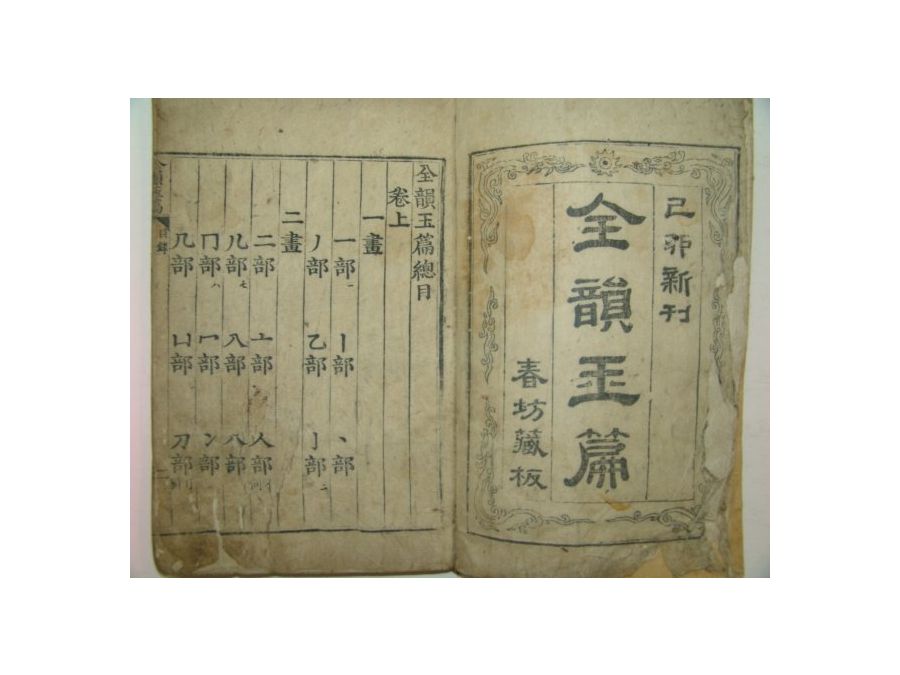 己卯新刊
全韻玉篇
春坊藏板
全韻玉篇總目
卷上
一畫
一部一 丨部 丶部
丿部 乙部 亅部二
二畫
二部 亠部 人部亻同
儿部七 入部 八部
冂部八 冖部 冫部
几部 凵部 刀部
目錄